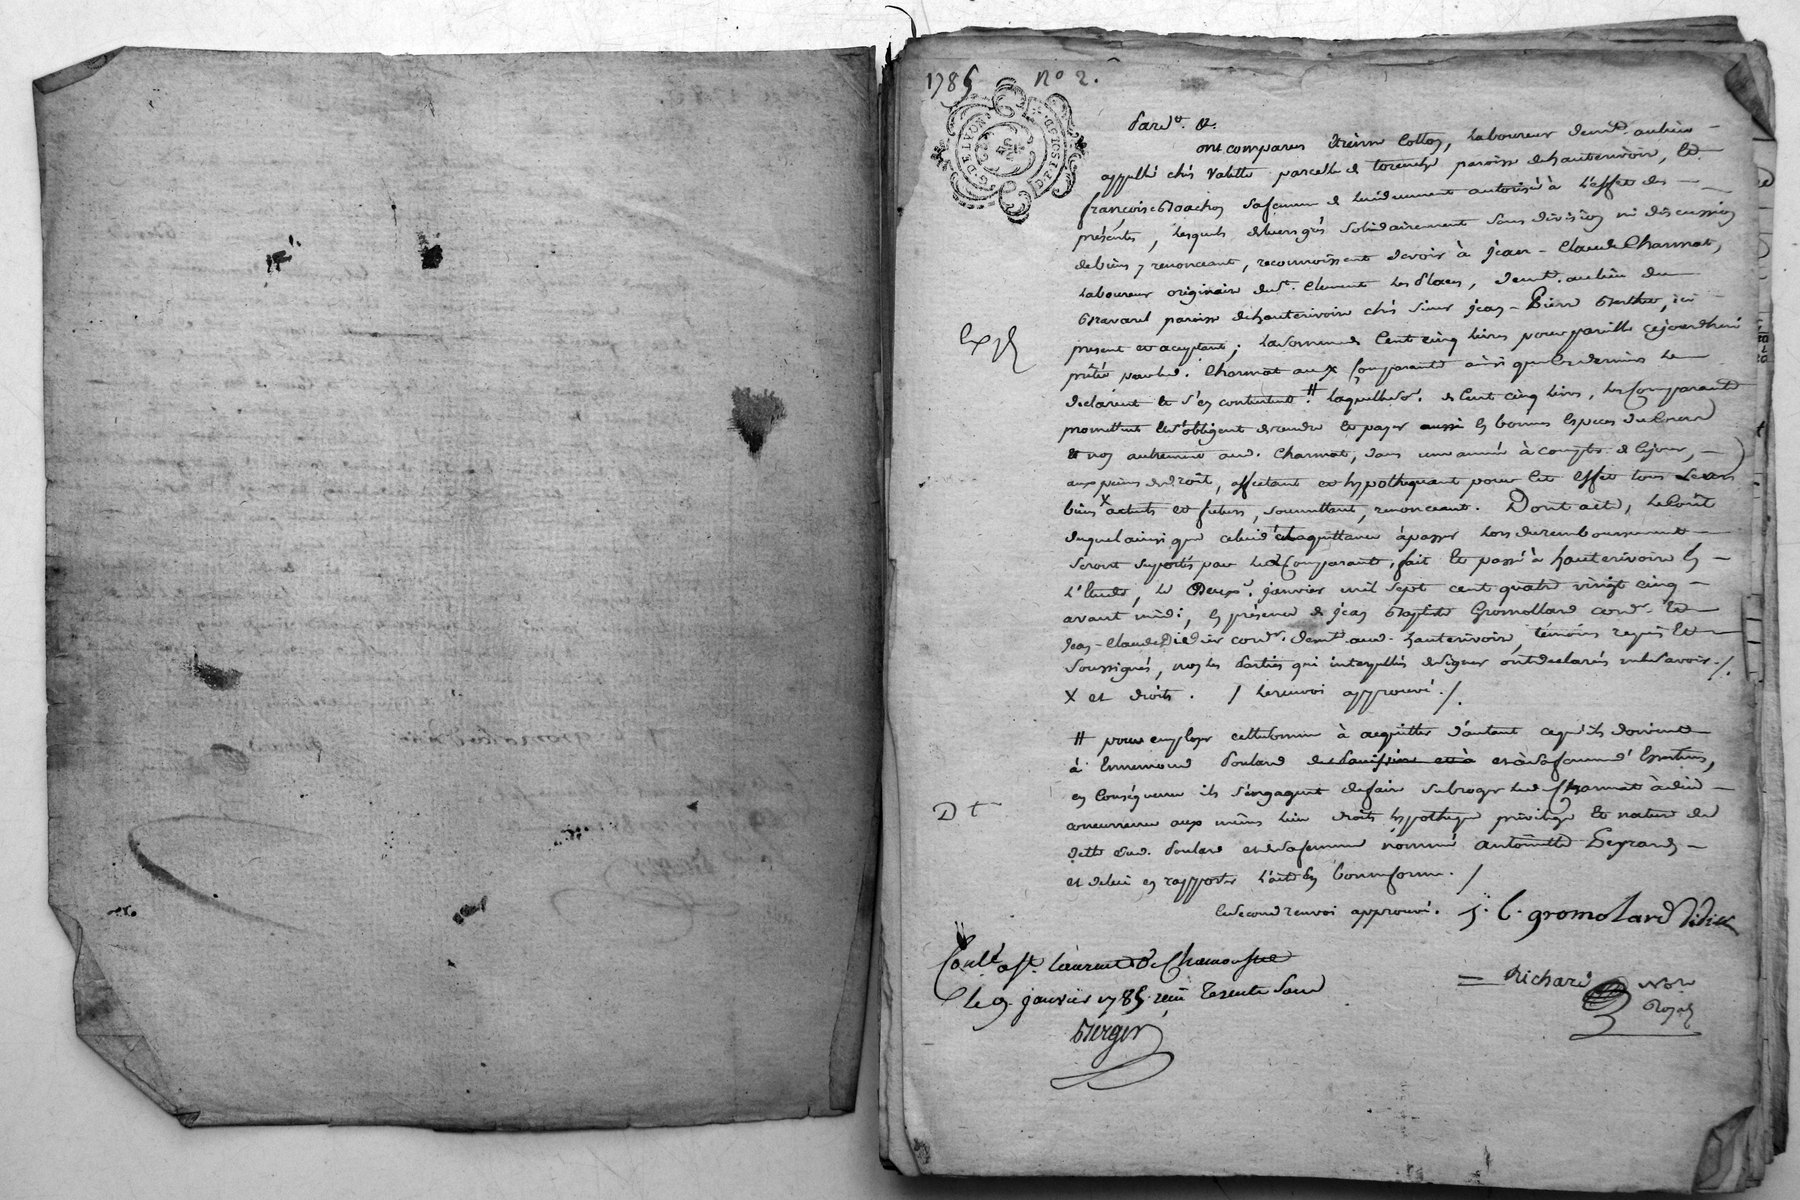 1785 N° 2.
G. DE LYON
DEUX SOLS F. P. D.
Pard.t &.
ont comparus Etienne Colloy, Laboureur demt. au lieu
appellé chés Valette parcelle de parroisse de hauterivoire, et
françoise sa femme de lui duement autorisée à l'effet des
présentes, lesquels de leurs grés solidairement sans division ni discussion
de biens y renonceant, reconnoissent devoir à Jean-Claude Charmat,
Laboureur originaire de St. Clement les Places, demt. au lieu du
Gravarel paroisse de hauterivoire chés sieur Jean-Pierre, ici
present et aceptant; la somme de Cent cinq livres pour pareille cejourdhui
prêtée par led. Charmat aux Comparants ainsi que ces derniers le
Exp.
declarent et s'en contentent # laquelle so. de Cent cinq livres, les Comparants
promettent et s'obligent de rendre et payer aussi en bonnes Especes du Cours
et non autrement aud. Charmat, dans une année à compter de ce jour,
aux peines de droit, affectant et hypothequant pour cet effet tous Leurs
biens X actuels et futurs, soumettant, renonceant. Dont acte, Le Coût
duquel ainsi que celui de la quittance à passer Lors du remboursement
seront suportés par les Comparants, fait et passé à hauterivoire En
L'Etude, le Deux. Janvier mil sept cent quatre vingt cinq
avant midi; En présence de Jean Baptiste Gromollard cord. et
Jean-Claude Didier cordr. demt. aud. hauterivoire, témoins requis et
soussignés, non les Parties qui interpellés de signer ont declarés ne le savoir./.
X et droits. / Le renvoi approuvé./.
# pour employer cette somme à acquitter d'autant ce qu'ils doivent
à Ennemond Poulard et à sa femme d'
en Conséquence ils s'engagent de faire subroger led. Charmat à düe
DT
concurrence aux mêmes lieu droits hypotheque privilege et nature de
dette dud. Poulard et de sa femme nommée antoinette
et de lui en rapporter L'acte En bonne forme. /
Le second renvoi approuvé. J. B. gromolard didier
Richard Not.re Royal
Conlé. à St. Laurent de Chamousset
Le 9. janvier 1785. reçu
Berger